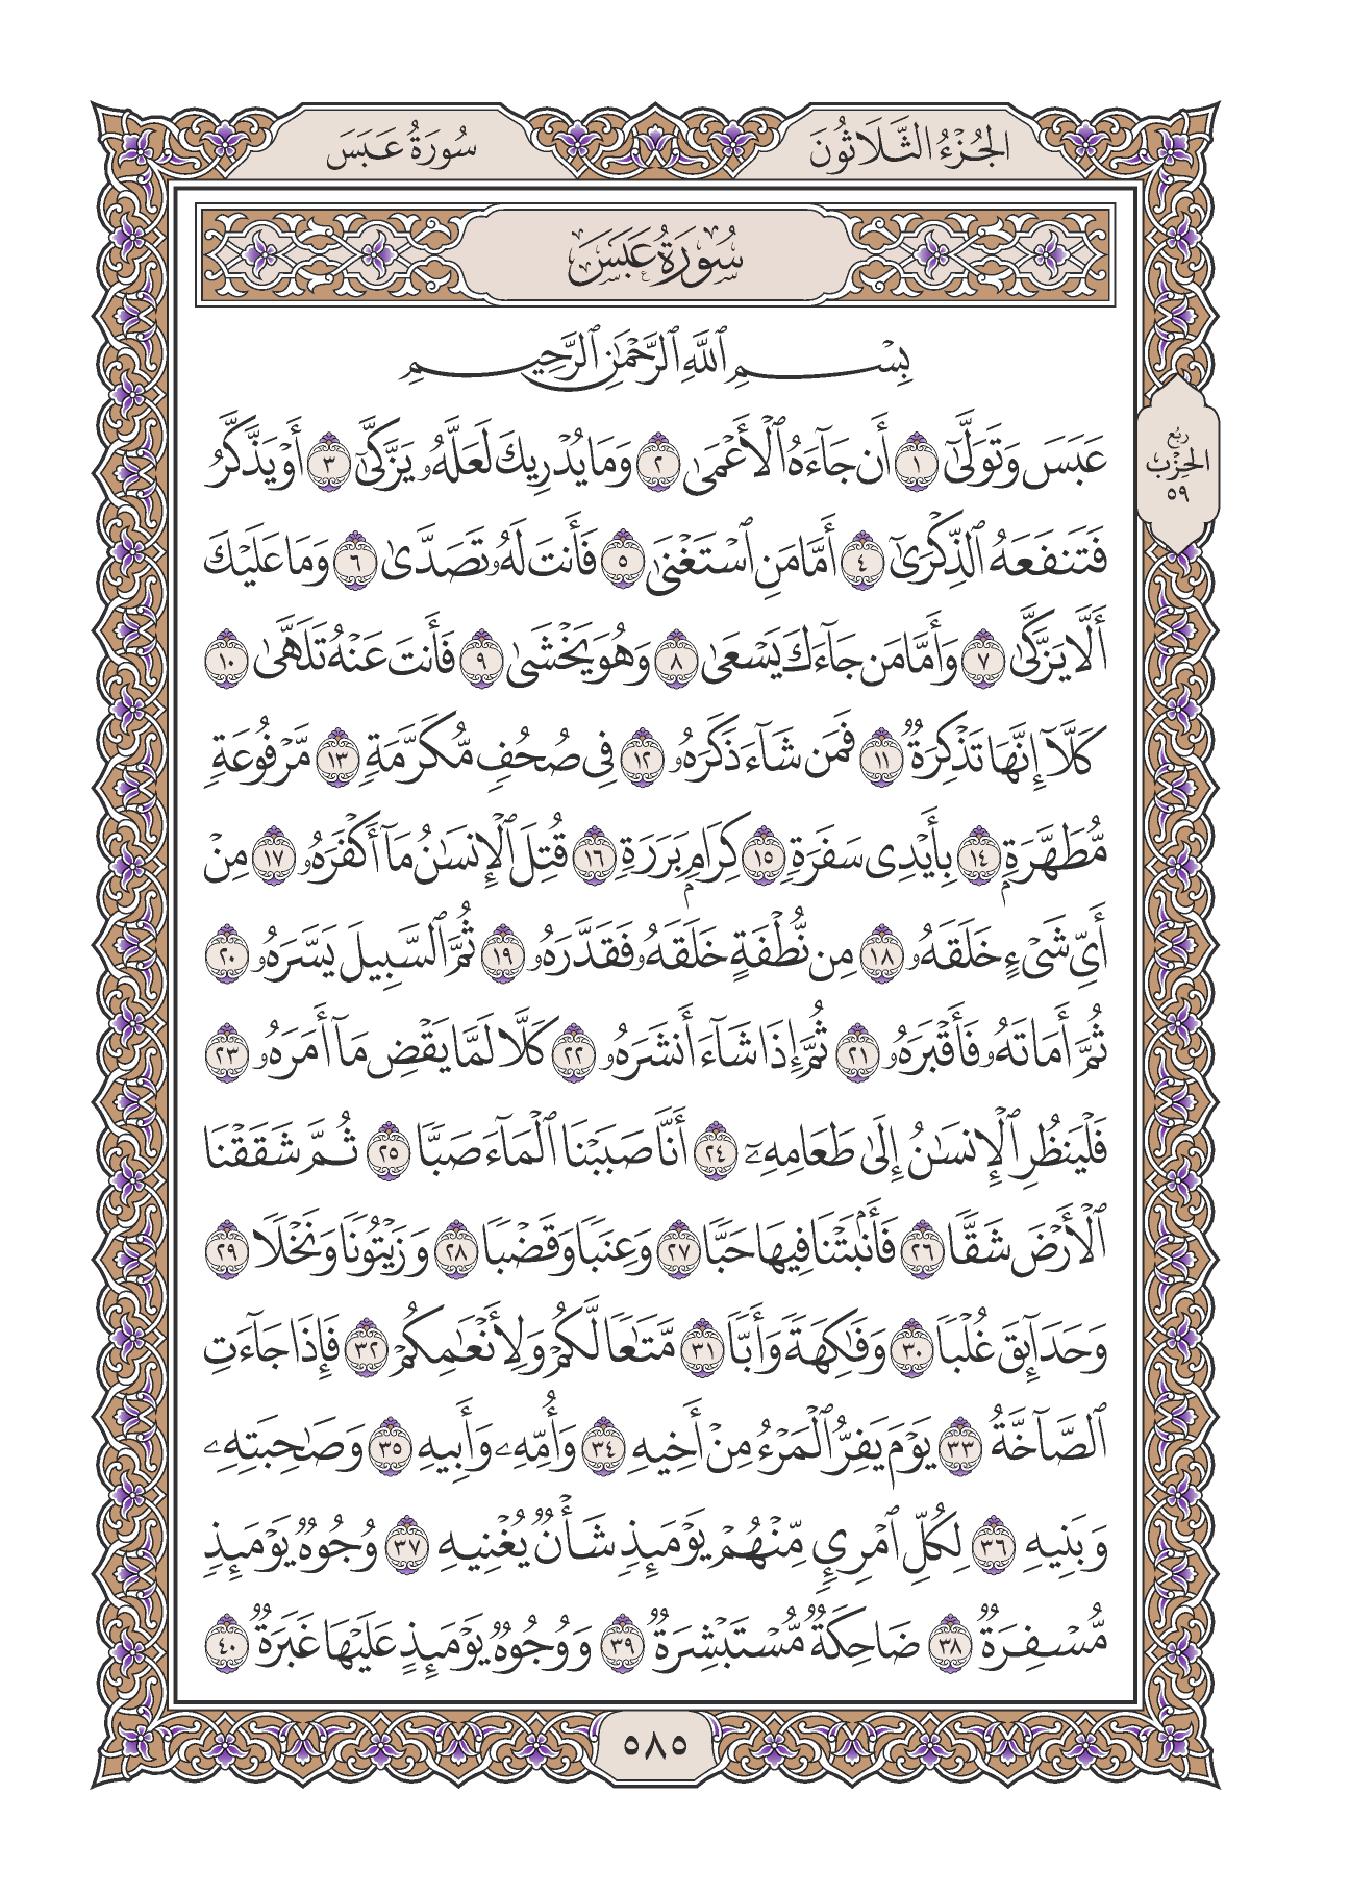 الجُزْءُ الثَّلَاثُونَ
سُورَةُ عَبَسَ
سُورَةُ عَبَسَ
بِسْمِ ٱللَّهِ ٱلرَّحْمَٰنِ ٱلرَّحِيمِ
عَبَسَ وَتَوَلَّىٰٓ ١ أَن جَآءَهُ ٱلْأَعْمَىٰ ٢ وَمَا يُدْرِيكَ لَعَلَّهُۥ يَزَّكَّىٰٓ ٣ أَوْ يَذَّكَّرُ
رُبُع
الحِزْبِ
٥٩
فَتَنفَعَهُ ٱلذِّكْرَىٰٓ ٤ أَمَّا مَنِ ٱسْتَغْنَىٰ ٥ فَأَنتَ لَهُۥ تَصَدَّىٰ ٦ وَمَا عَلَيْكَ
أَلَّا يَزَّكَّىٰ ٧ وَأَمَّا مَن جَآءَكَ يَسْعَىٰ ٨ وَهُوَ يَخْشَىٰ ٩ فَأَنتَ عَنْهُ تَلَهَّىٰ ١٠
كَلَّآ إِنَّهَا تَذْكِرَةٌ ١١ فَمَن شَآءَ ذَكَرَهُۥ ١٢ فِى صُحُفٍ مُّكَرَّمَةٍ ١٣ مَّرْفُوعَةٍ
مُّطَهَّرَةٍۭ ١٤ بِأَيْدِى سَفَرَةٍ ١٥ كِرَامٍۭ بَرَرَةٍ ١٦ قُتِلَ ٱلْإِنسَٰنُ مَآ أَكْفَرَهُۥ ١٧ مِنْ
أَىِّ شَىْءٍ خَلَقَهُۥ ١٨ مِن نُّطْفَةٍ خَلَقَهُۥ فَقَدَّرَهُۥ ١٩ ثُمَّ ٱلسَّبِيلَ يَسَّرَهُۥ ٢٠
ثُمَّ أَمَاتَهُۥ فَأَقْبَرَهُۥ ٢١ ثُمَّ إِذَا شَآءَ أَنشَرَهُۥ ٢٢ كَلَّا لَمَّا يَقْضِ مَآ أَمَرَهُۥ ٢٣
فَلْيَنظُرِ ٱلْإِنسَٰنُ إِلَىٰ طَعَامِهِۦٓ ٢٤ أَنَّا صَبَبْنَا ٱلْمَآءَ صَبًّا ٢٥ ثُمَّ شَقَقْنَا
ٱلْأَرْضَ شَقًّا ٢٦ فَأَنۢبَتْنَا فِيهَا حَبًّا ٢٧ وَعِنَبًا وَقَضْبًا ٢٨ وَزَيْتُونًا وَنَخْلًا ٢٩
وَحَدَآئِقَ غُلْبًا ٣٠ وَفَٰكِهَةً وَأَبًّا ٣١ مَّتَٰعًا لَّكُمْ وَلِأَنْعَٰمِكُمْ ٣٢ فَإِذَا جَآءَتِ
ٱلصَّآخَّةُ ٣٣ يَوْمَ يَفِرُّ ٱلْمَرْءُ مِنْ أَخِيهِ ٣٤ وَأُمِّهِۦ وَأَبِيهِ ٣٥ وَصَٰحِبَتِهِۦ
وَبَنِيهِ ٣٦ لِكُلِّ ٱمْرِئٍ مِّنْهُمْ يَوْمَئِذٍ شَأْنٌ يُغْنِيهِ ٣٧ وُجُوهٌ يَوْمَئِذٍ
مُّسْفِرَةٌ ٣٨ ضَاحِكَةٌ مُّسْتَبْشِرَةٌ ٣٩ وَوُجُوهٌ يَوْمَئِذٍ عَلَيْهَا غَبَرَةٌ ٤٠
٥٨٥